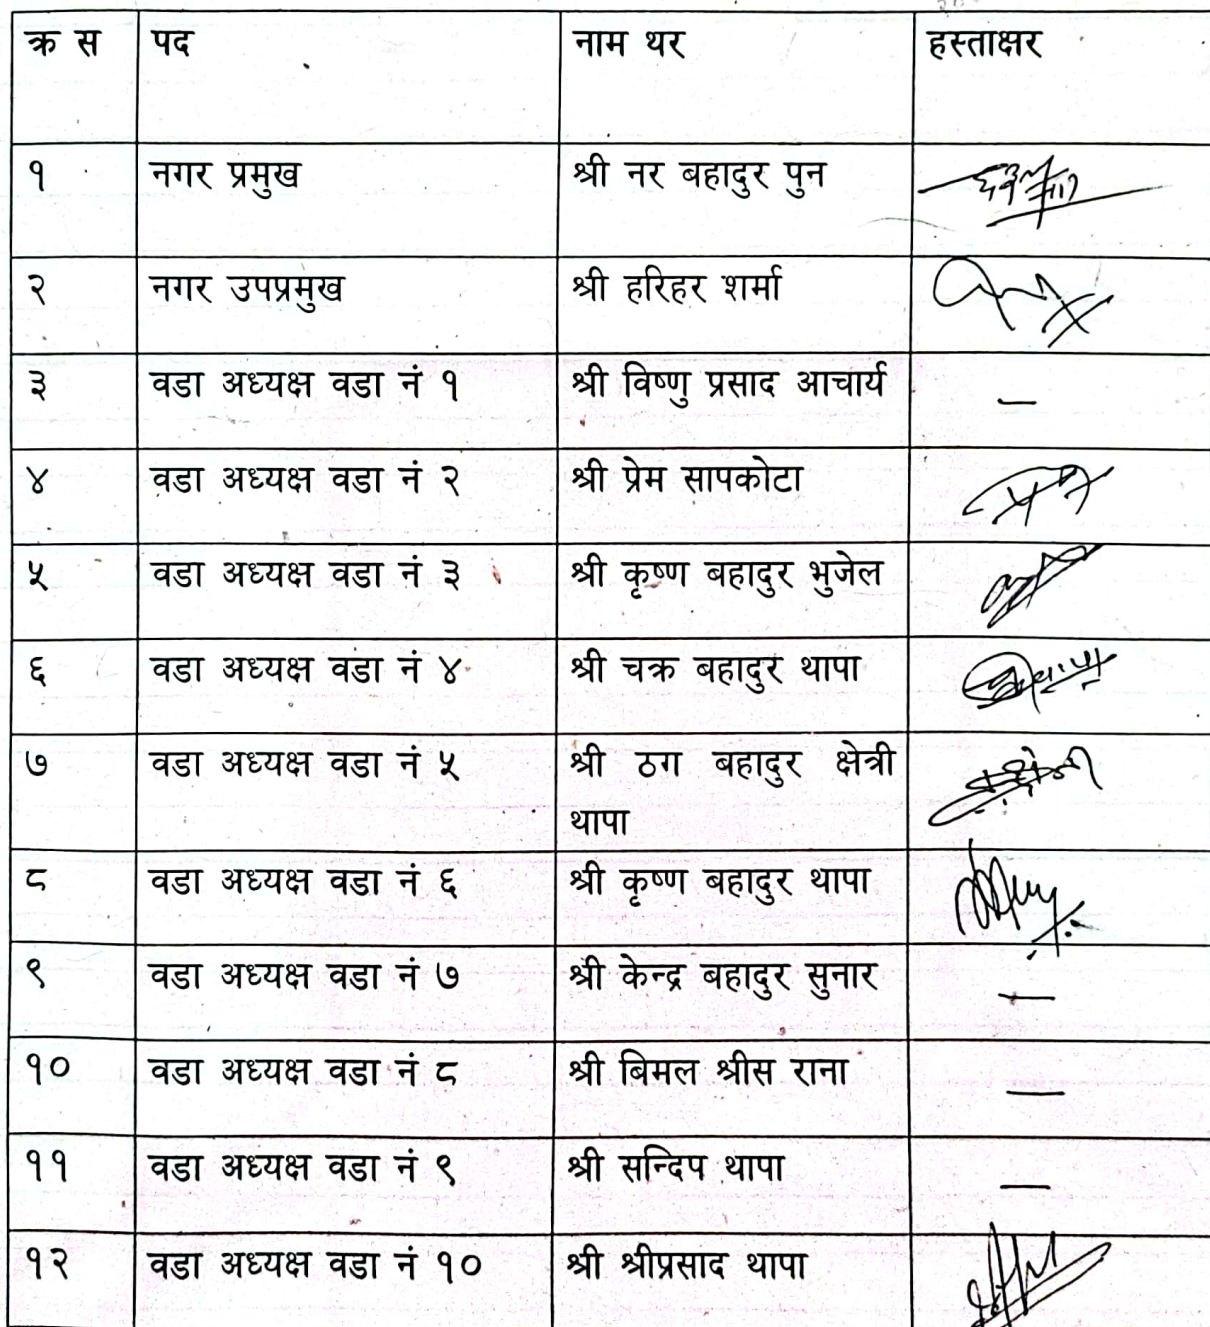 क्र स पद नाम थर हस्ताक्षर
१ नगर प्रमुख श्री नर बहादुर पुन
२ नगर उपप्रमुख श्री हरिहर शर्मा
३ वडा अध्यक्ष वडा नं १ श्री विष्णु प्रसाद आचार्य —
४ वडा अध्यक्ष वडा नं २ श्री प्रेम सापकोटा
५ वडा अध्यक्ष वडा नं ३ श्री कृष्ण बहादुर भुजेल
६ वडा अध्यक्ष वडा नं ४ श्री चक्र बहादुर थापा
७ वडा अध्यक्ष वडा नं ५ श्री ठग बहादुर क्षेत्री
थापा
८ वडा अध्यक्ष वडा नं ६ श्री कृष्ण बहादुर थापा
९ वडा अध्यक्ष वडा नं ७ श्री केन्द्र बहादुर सुनार —
१० वडा अध्यक्ष वडा नं ८ श्री बिमल श्रीस राना —
११ वडा अध्यक्ष वडा नं ९ श्री सन्दिप थापा —
१२ वडा अध्यक्ष वडा नं १० श्री श्रीप्रसाद थापा